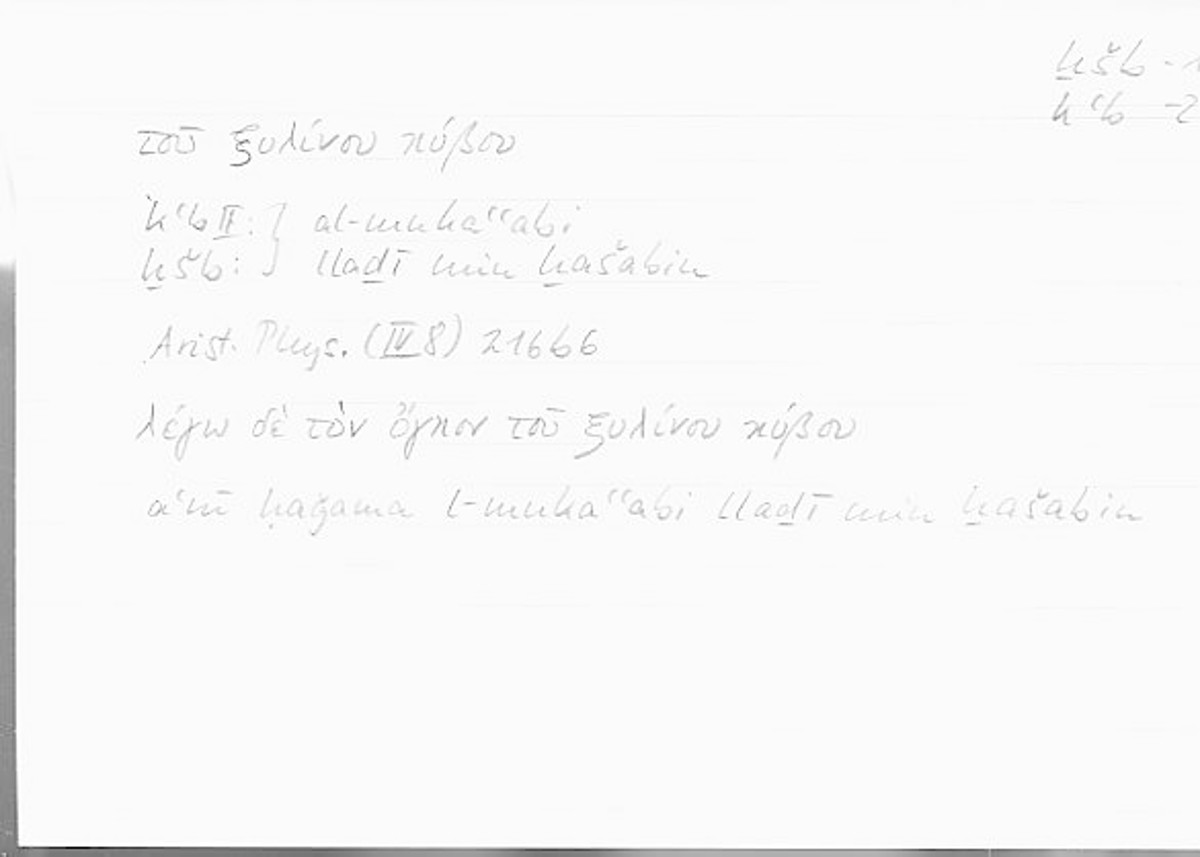 ḫšb - 1
kʿb - 2
τοῦ ξυλίνου κύβου
kʿb II: } al-mukaʿʿabi
ḫšb: } llaḏī min ḫašabin
Arist. Phys. (IV 8) 216b6
λέγω δὲ τὸν ὄγκον τοῦ ξυλίνου κύβου
aʿnī ḥaǧama l-mukaʿʿabi llaḏī min ḫašabin